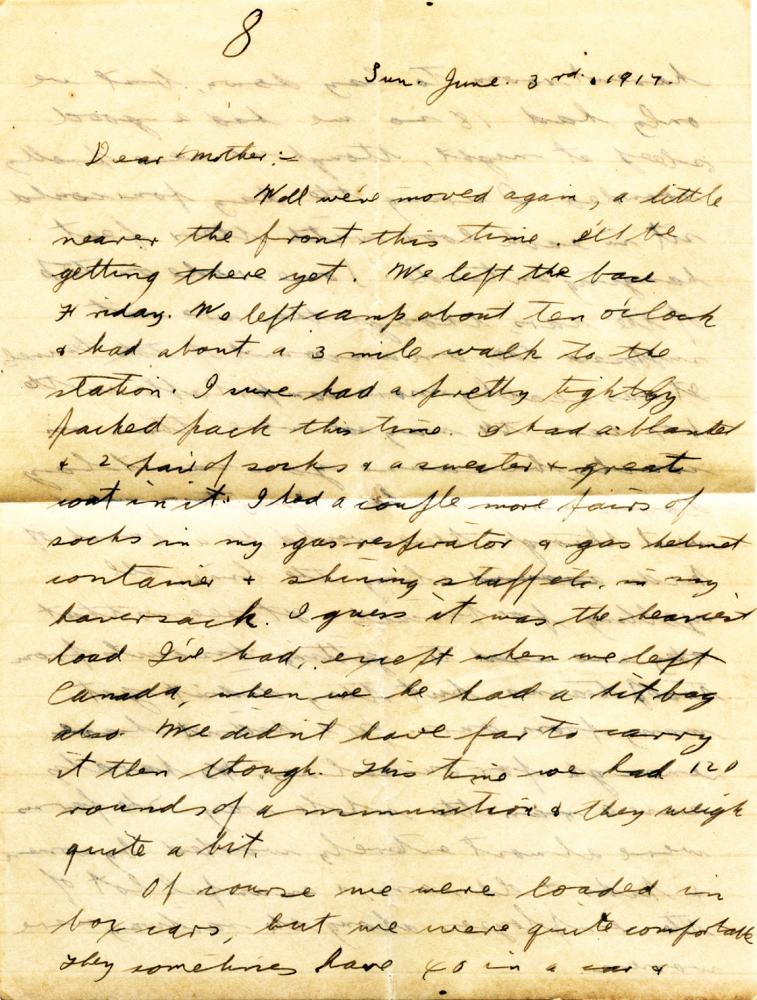 8
Sun. June. 3rd. 1917.
Dear Mother:-
Well we've moved again, a little
nearer the front this time. I'll be
getting there yet. We left the base
Friday. We left camp about ten o'clock
& had about a 3 mile walk to the
station. I sure had a pretty tightly
packed pack this time. I had a blanket
& 2 pair of socks & a sweater & great
coat in it. I had a couple more pairs of
socks in my gas-respirator & gas helmet
container & shining stuff etc. in my
haversack. I guess it was the heaviest
load I've had, except when we left
Canada, when we he had a kit bag
also. We didn't have far to carry
it then though. This time we had 120
rounds of ammunition & they weigh
quite a bit.
Of course we were loaded in
box cars, but we were quite comfortable
They sometimes have 40 in a car &